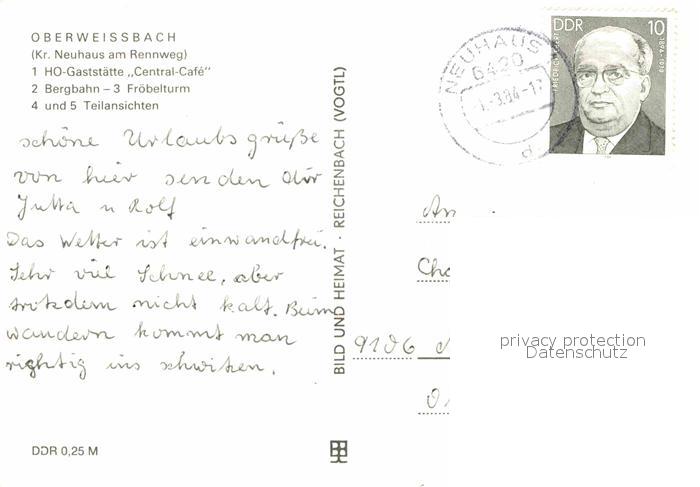 OBERWEISSBACH
(Kr. Neuhaus am Rennweg)
1 HO-Gaststätte „Central-Café"
2 Bergbahn – 3 Fröbelturm
4 und 5 Teilansichten
schöne Urlaubsgrüße
von hier senden dir
Jutta u Rolf
Das Wetter ist einwandfrei.
Sehr viel Schnee, aber
trotzdem nicht kalt. Beim
wandern kommt man
richtig ins schwitzen.
DDR 0,25 M
BILD UND HEIMAT · REICHENBACH (VOGTL)
NEUHAUS
6420
-1.-3.84-17
d
DDR 10
An
Che
9106
privacy protection
Datenschutz